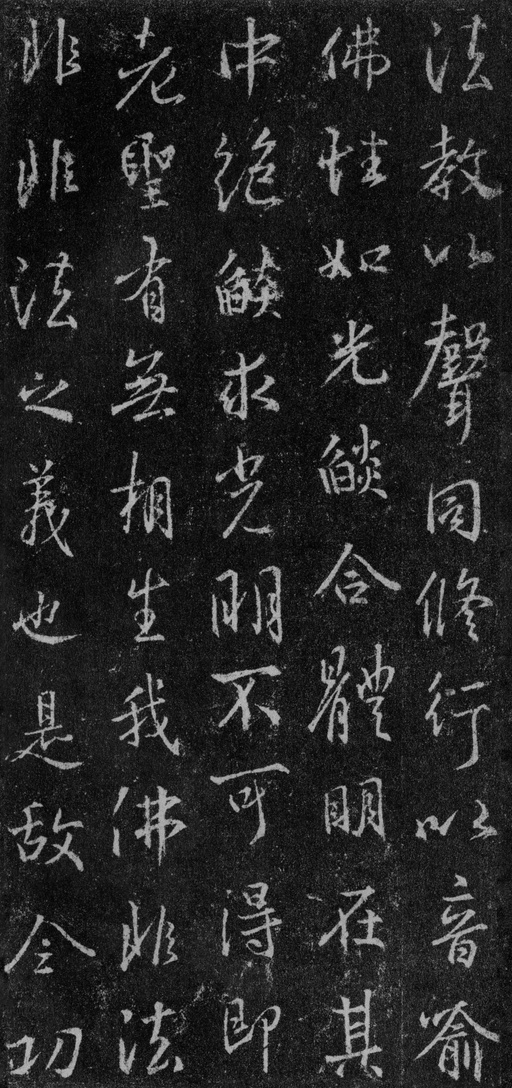 法教以聲同修行以音喻
佛性如光燄合體明在其
中絶燄求光明不可得即
老聖有無相生我佛非法
非非法之義也是故今